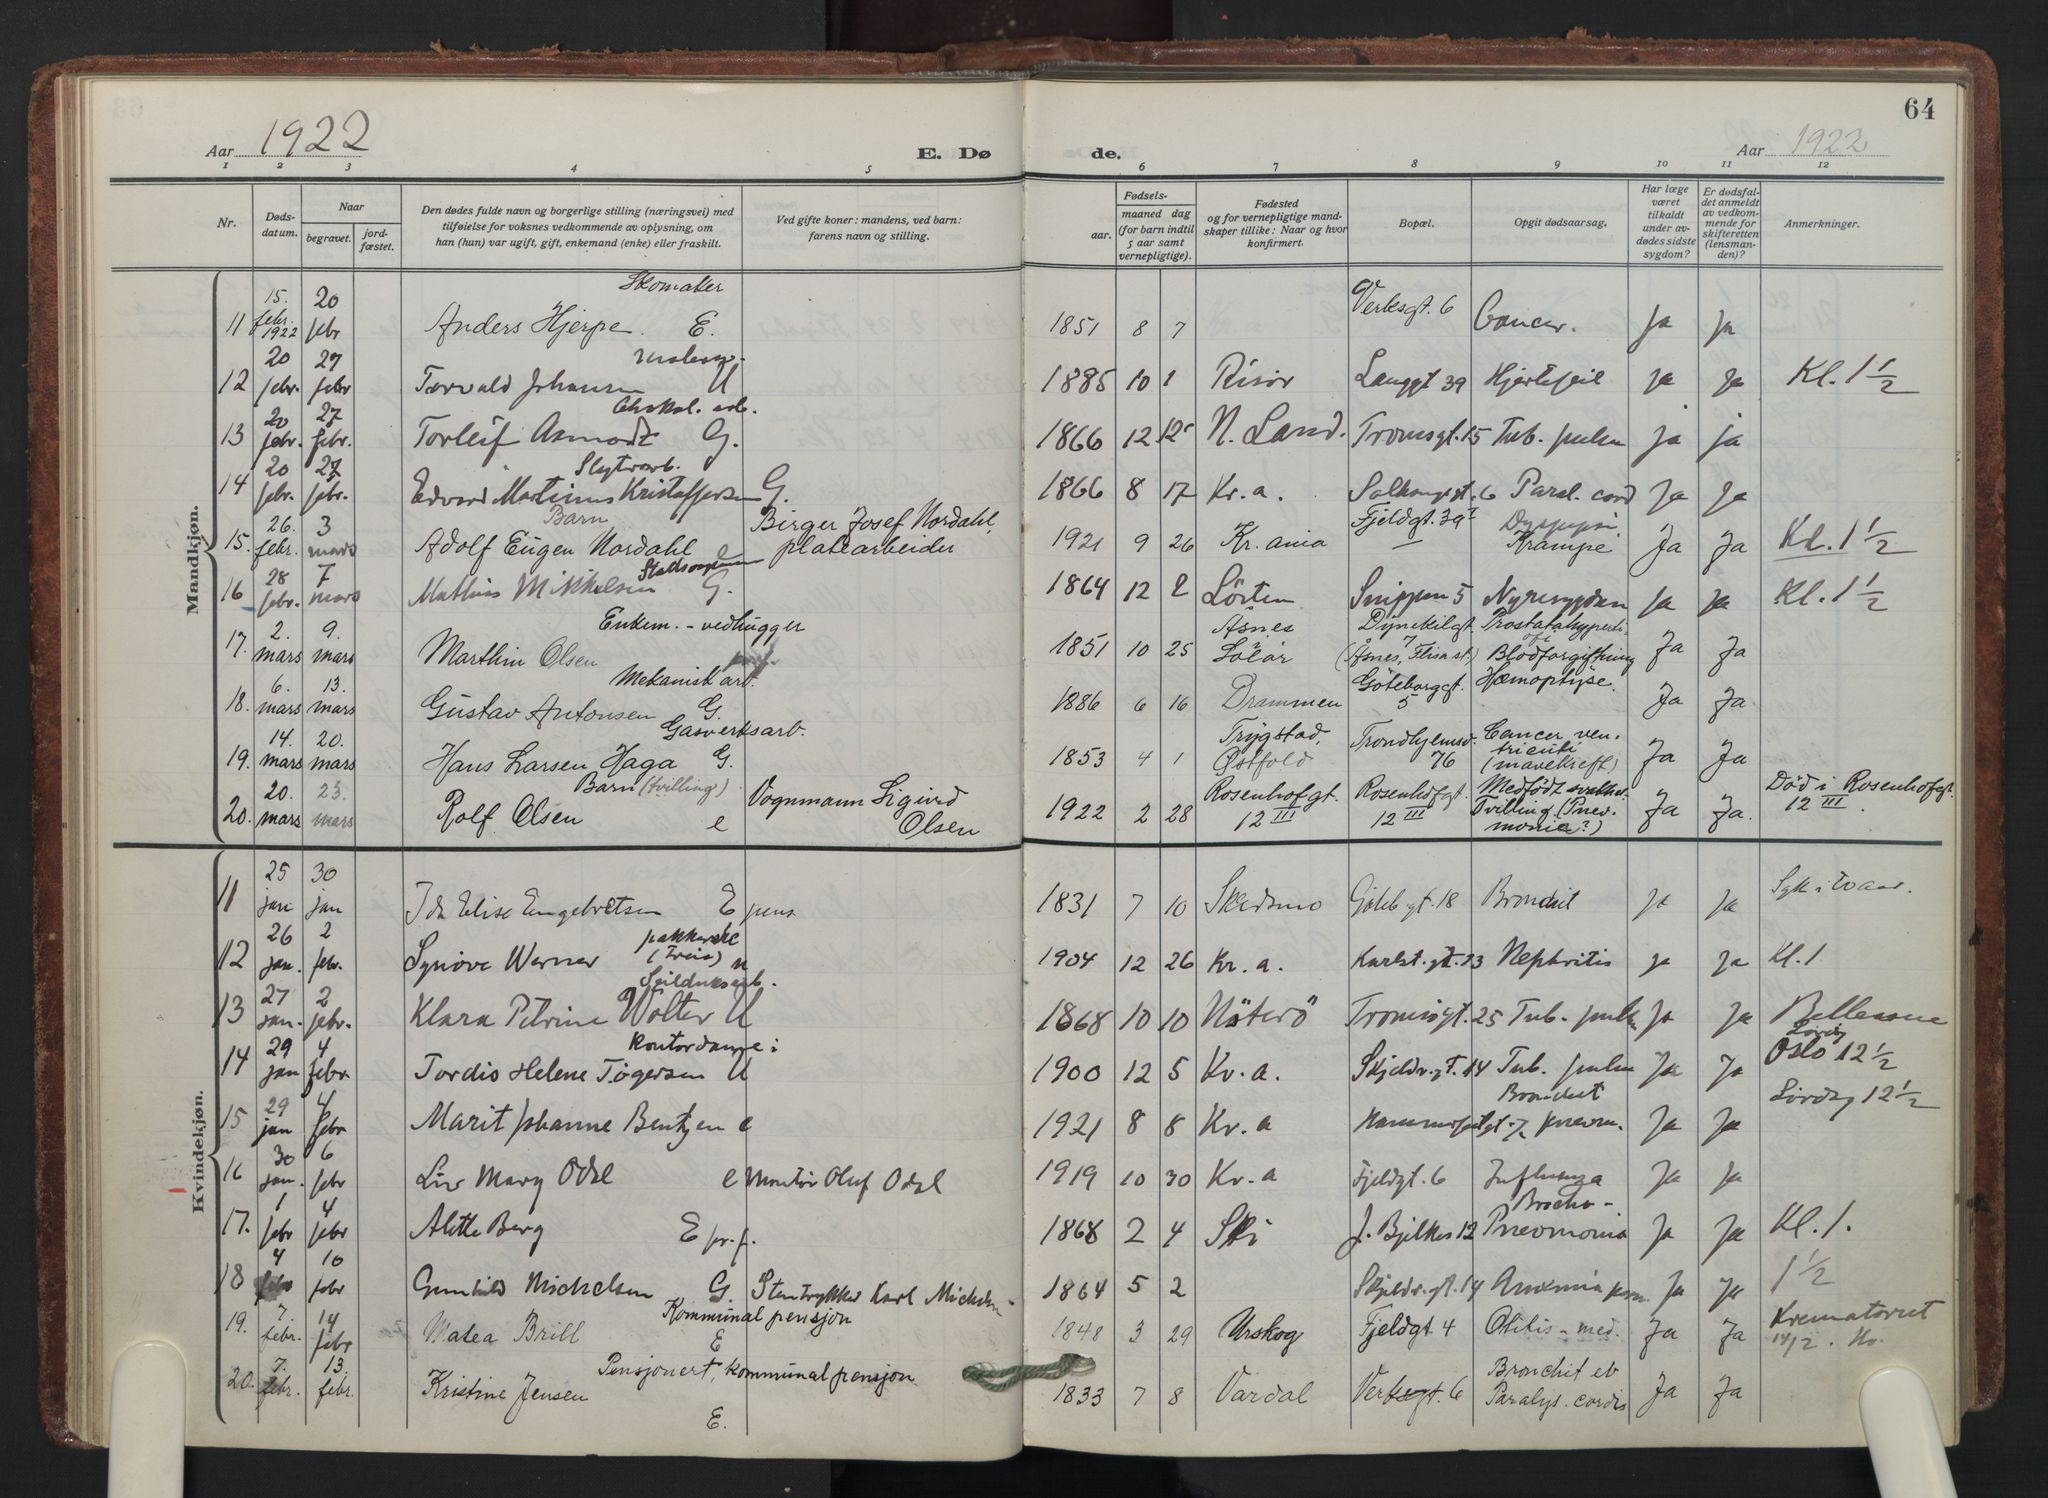 64
Aar 1922
E. Dø
de.
Aar 1922
1 2 3 4 5 6 7 8 9 10 11 12
Nr.
Døds-
datum.
Naar
begravet.
jord-
fæstet.
Den dødes fulde navn og borgerlige stilling (næringsvei) med
tilføielse for voksnes vedkommende av oplysning, om
han (hun) var ugift, gift, enkemand (enke) eller fraskilt.
Ved gifte koner: mandens, ved barn:
farens navn og stilling.
Fødsels-
aar.
maaned dag
(for barn indtil
5 aar samt
vernepligtige).
Fødested
og for vernepligtige mand-
skaper tillike: Naar og hvor
konfirmert.
Bopæl.
Opgit dødsaarsag.
Har læge
været
tilkaldt
under av-
dødes sidste
sygdom?
Er dødsfal-
det anmeldt
av vedkom-
mende for
skifteretten
(lensman-
den)?
Anmerkninger.
Mandkjøn.
Skomaker
11 15. febr. 1922 20 febr Anders Hjerpe E. 1851 8 7 Verksgt. 6 Cancer. Ja Ja
12 20 febr. 27 febr Torvald Johansen U 1885 10 1 Risör Langgt 39 Hjertefeil Ja Ja Kl. 1 1/2
13 20 febr. 27 febr. Torleif Asmodt G. 1866 12 12 N. Land. Tromsgt. 15 Tub. pulm ja ja
14 20 febr. 27 febr. Edvard Martinus Kristoffersen G. 1866 8 17 Kr.a. 6 Paral. cord Ja Ja
Barn
15. 26. febr. 3 mars Adolf Eugen Nordahl e Birger Josef Nordahl, platearbeider 1921 9 26 Kr.ania Fjeldgt. 39 Krampe Ja Ja Kl. 1 1/2
16 28 febr. 7 mars Mathias Mikkelsen G. 1864 12 2 Lörten Snippen 5 Nyresygdom Ja Ja Kl. 1 1/2
Enkem. - vedhugger
17. 2. mars 9. mars Marthin Olsen 1851 10 25 Åsnes Solør Dynekilgt. 7 (Åsnes, Flisa st.) Blodforgiftning Ja Ja
Mekanisk arb.
18. 6. mars 13. mars Gustav Antonsen G. 1886 6 16 Drammen Göteborggt. 5 Hæmoptyse. Ja Ja
Gasverksarb.
19. 14. mars 20. mars Hans Larsen Haga G. 1853 4 1 Trygstad, Østfold Trondhjemsv. 76 Cancer ventriculi (mavekreft) Ja Ja
Barn (tvilling)
20. 20. mars 23. mars Rolf Olsen e Vognmann Sigurd Olsen 1922 2 28 Rosenhofgt. 12 III Rosenhofgt. 12 III Medfödt svakhet. Tvilling (Pneumonie?) Ja Ja. Död i Rosenhofgt. 12 III.
Kvindekjøn.
11 25 jan 30 jan Ida Elise Engebretsen E pens 1831 7 10 Skedsmo Göteb gt. 18 Bronchit Ja Ja Syk i to aar.
pakkerske (Freia)
12 26 jan. 2 febr. Synöve Werner u 1904 12 26 Kr.a. Karlst. gt. 13 Nephritis Ja Ja Kl. 1
13 27 jan. 2 febr. Klara Petrine Wolter U 1868 10 10 Nöterö Tromsögt. 25 Tub. pulm Ja Ja Bellevue
Kontordame
14 29 jan 4 febr. Tordis Helene Tøgersen U 1900 12 5 Kr.a. Skjeldr. gt. 14 Tub. pulm Ja Ja Oslo 12 1/2
15 29 jan 4 febr Marit Johanne Bentzen e 1921 8 8 Kr.a Bronchit pnevm. Ja Ja Lørdag 12 1/2
16 30 jan. 6 febr Liv Mary Odal e Montör Oluf Odal 1919 10 30 Kr.a Fjeldgt. 6 Influenza Ja Ja
17. 1 febr 4 febr Alette Berg E pr. f. 1868 2 4 Ski J. Bjelkes 12 Broncho-Pneomonia Ja Ja Kl. 1.
18 4 febr 10 febr Gunhild Michelsen G. Stentrykker Karl Michelsen 1864 5 2 Skjeldr. gt. 14 Ja Ja 1 1/2
Kommunal pensjon
19. 7. febr. 14 febr Matea Brill E 1848 3 29 Urskog Fjeldgt. 4 Otitis - med. Ja Ja Krematoriet 14/2.
Pensjonert, kommunal pensjon
20. 7. febr. 13. febr. Kristine Jensen E. 1833 7 8 Vardal Verksgt. 6 Bronchit et Paralys. cordis Ja Ja